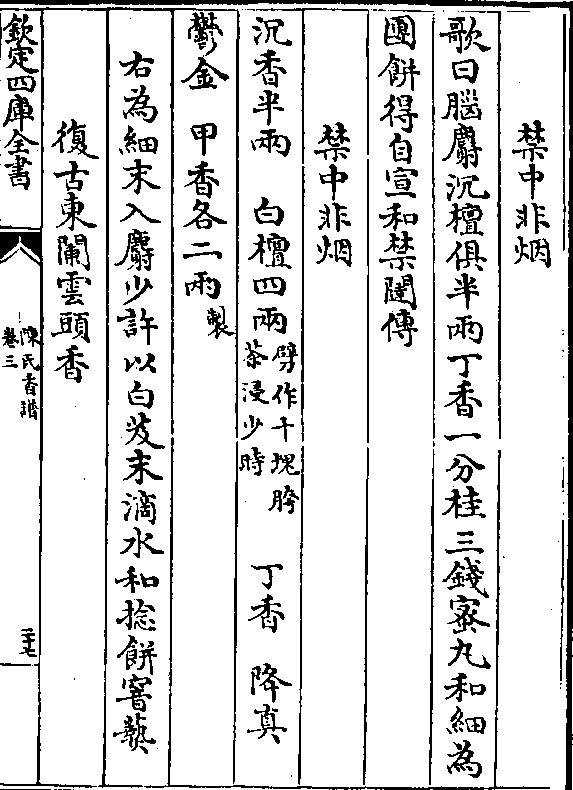 禁中非烟
歌曰腦麝沉檀俱半兩丁香一分桂三錢蜜丸和細為
團餅得自宣和禁闥傳
禁中非烟
沉香半兩 白檀四兩劈作十塊胯茶浸少時 丁香 降真
鬱金 甲香各二兩製
右為細末入麝少許以白芨末滴水和捻餅窨爇
復古東闌雲頭香
欽定四庫全書
陳氏香譜
卷三
三十七